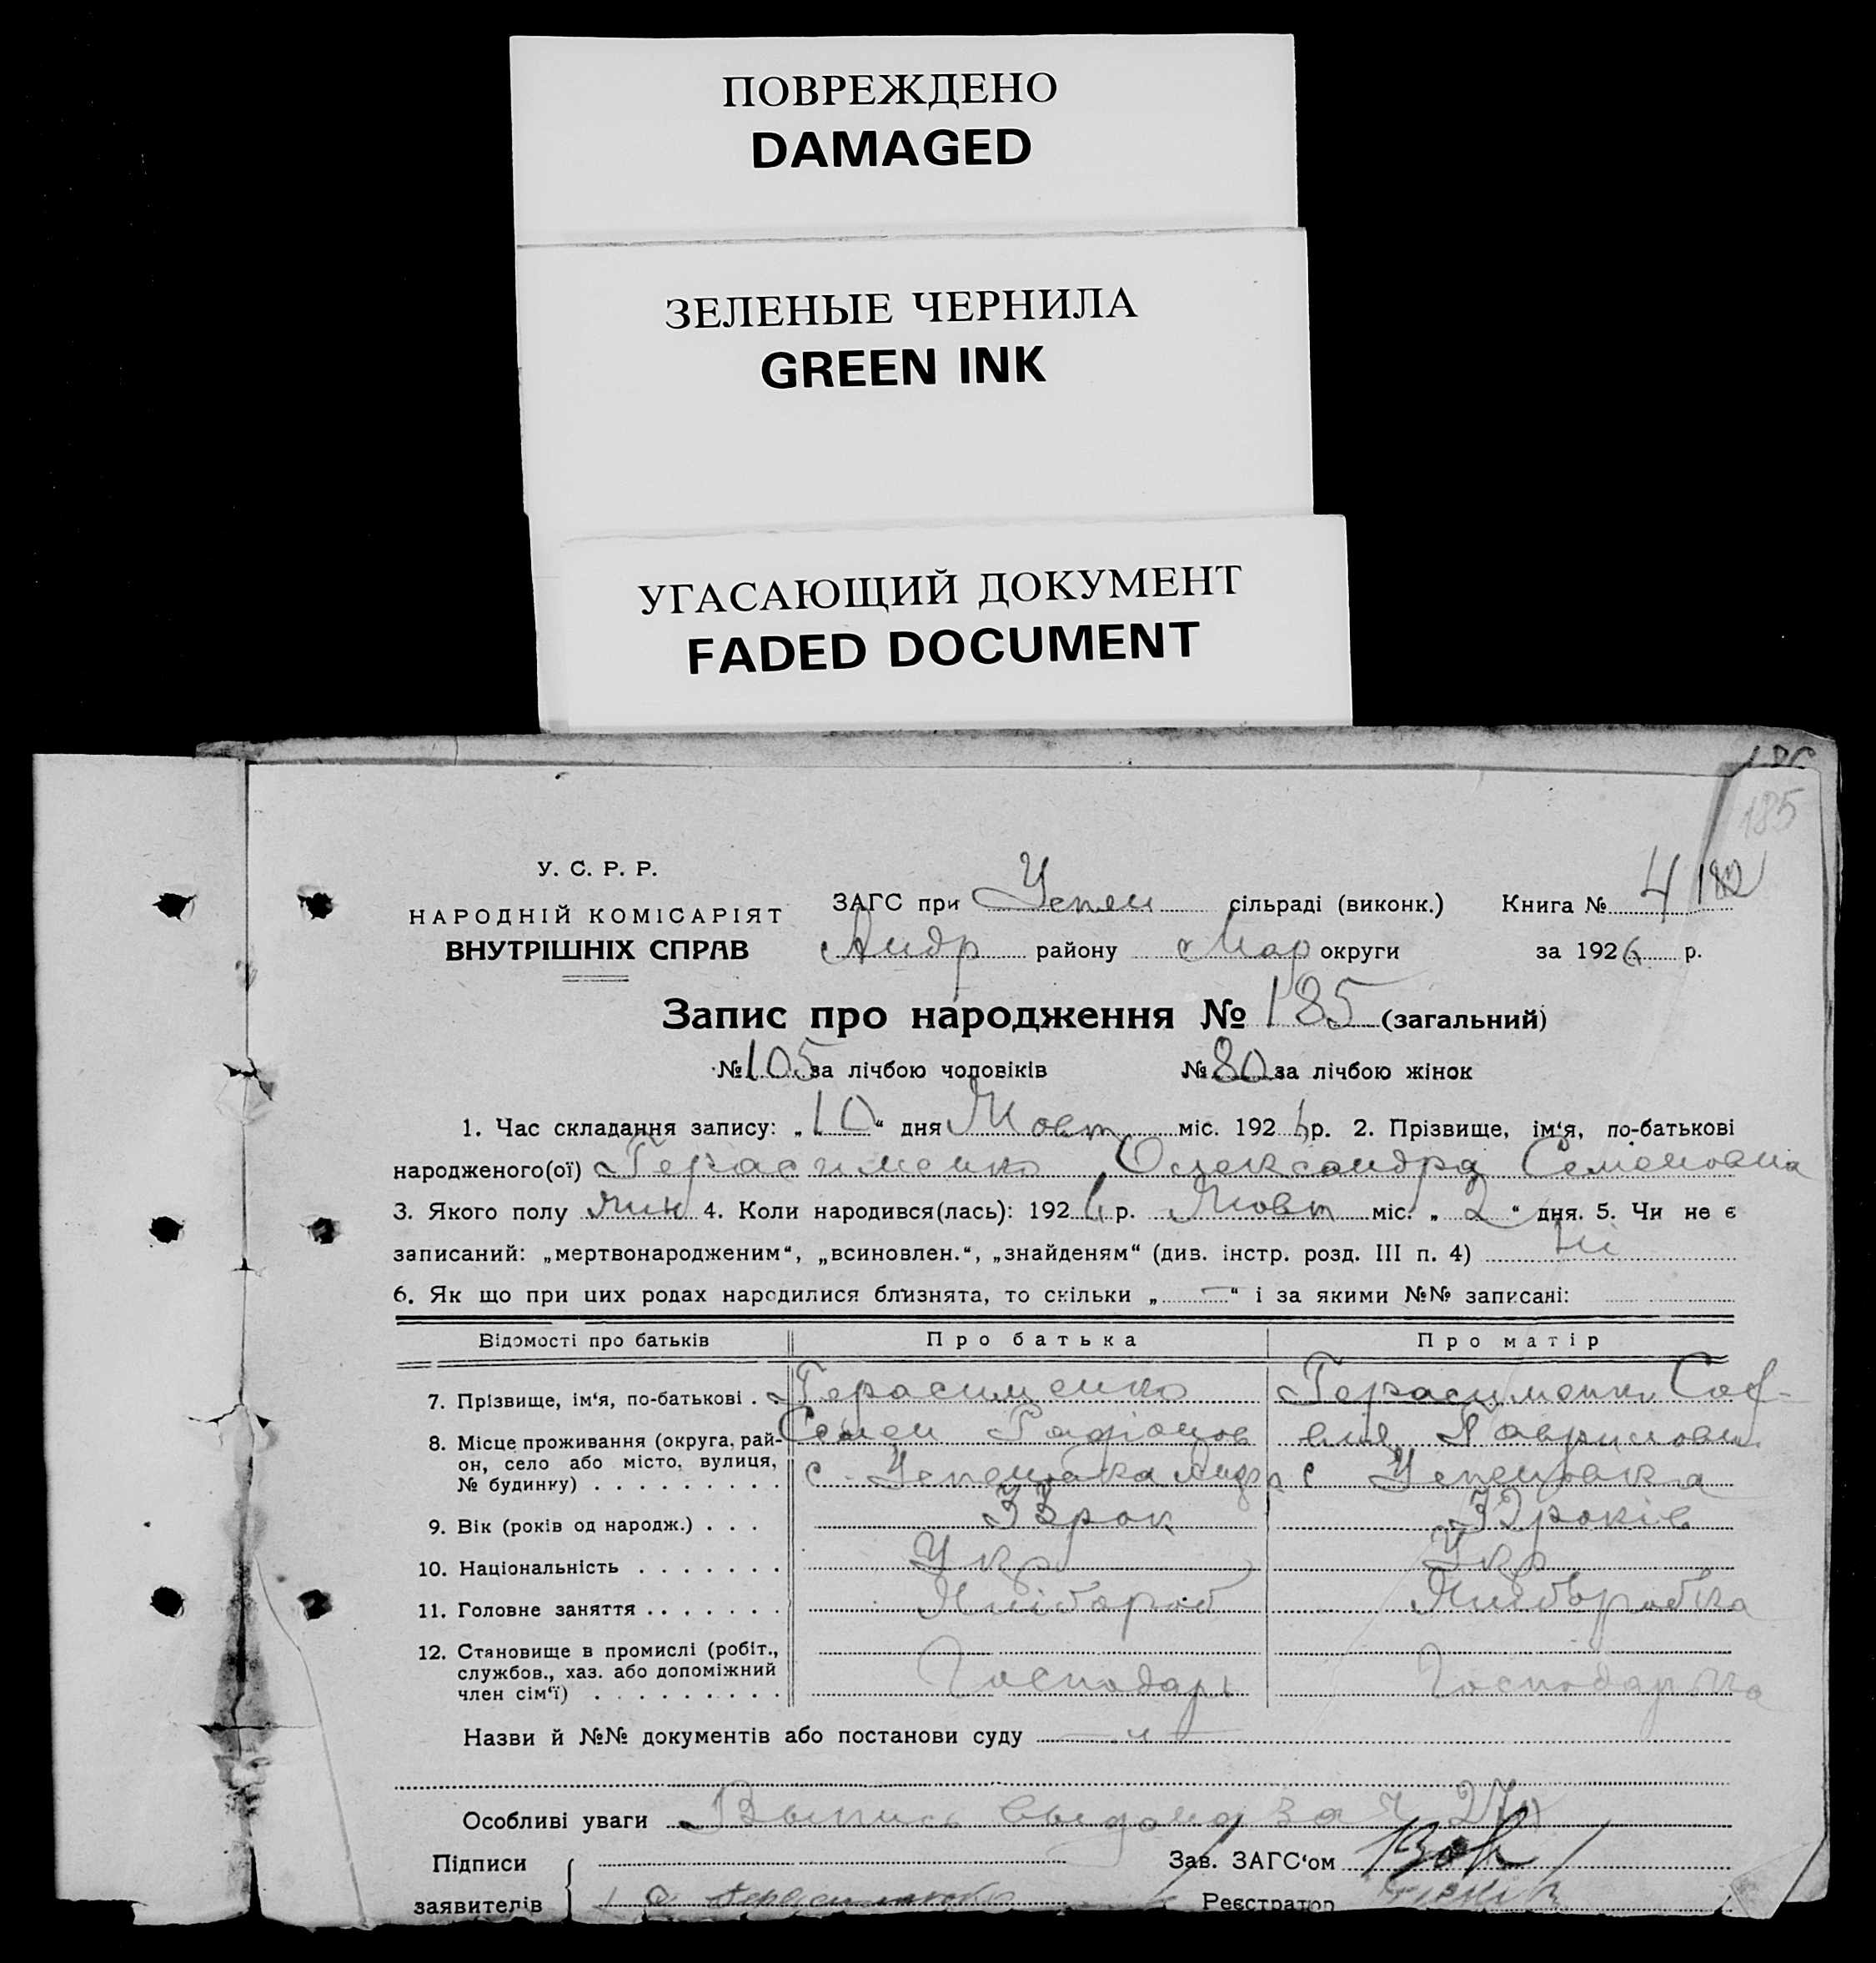 ПОВРЕЖДЕНО
DAMAGED
ЗЕЛЕНЫЕ ЧЕРНИЛА
GREEN INK
УГАСАЮЩИЙ ДОКУМЕНТ
FADED DOCUMENT
185
У. С. Р. Р.
НАРОДНІЙ КОМІСАРІЯТ
ВНУТРІШНІХ СПРАВ
ЗАГС при Успен сільраді (виконк.) Книга № 4 182
Андр району Мар округи за 1926 р.
Запис про народження № 185 (загальний)
№ 105 за лічбою чоловіків № 80 за лічбою жінок
1. Час складання запису: „10“ дня Жовт міс. 1926 р. 2. Прізвище, ім‘я, по-батькові
народженого(ої) Герасименко Олександра Семеновна
3. Якого полу жин 4. Коли народився(лась): 1926 р. Жовт міс. „2“ дня. 5. Чи не є
записаний: „мертвонародженим“, „всиновлен.“, „знайденям“ (див. інстр. розд. III п. 4) Ні
6. Як що при цих родах народилися близнята, то скільки „—“ і за якими №№ записані:
Відомості про батьків Про батька Про матір
7. Прізвище, ім‘я, по-батькові . . Герасименко Герасименко
Семен Радіонов
8. Місце проживання (округа, рай-
он, село або місто, вулиця, с. Успеновка Андр с Успеновка
№ будинку) . . . . . . . . .
9. Вік (років од народж.) . . . 33 рок 32 років
10. Національність . . . . . . . Укр Укр
11. Головне заняття . . . . . . . Хлібороб Хліборобка
12. Становище в промислі (робіт.,
службов., хаз. або допоміжний
член сім‘ї) . . . . . . . . . Господарь Господарька
Назви й №№ документів або постанови суду
Особливі уваги Выпись выдана за № 27
Підписи Зав. ЗАГС‘ом
заявителів Герасименко Реєстратор